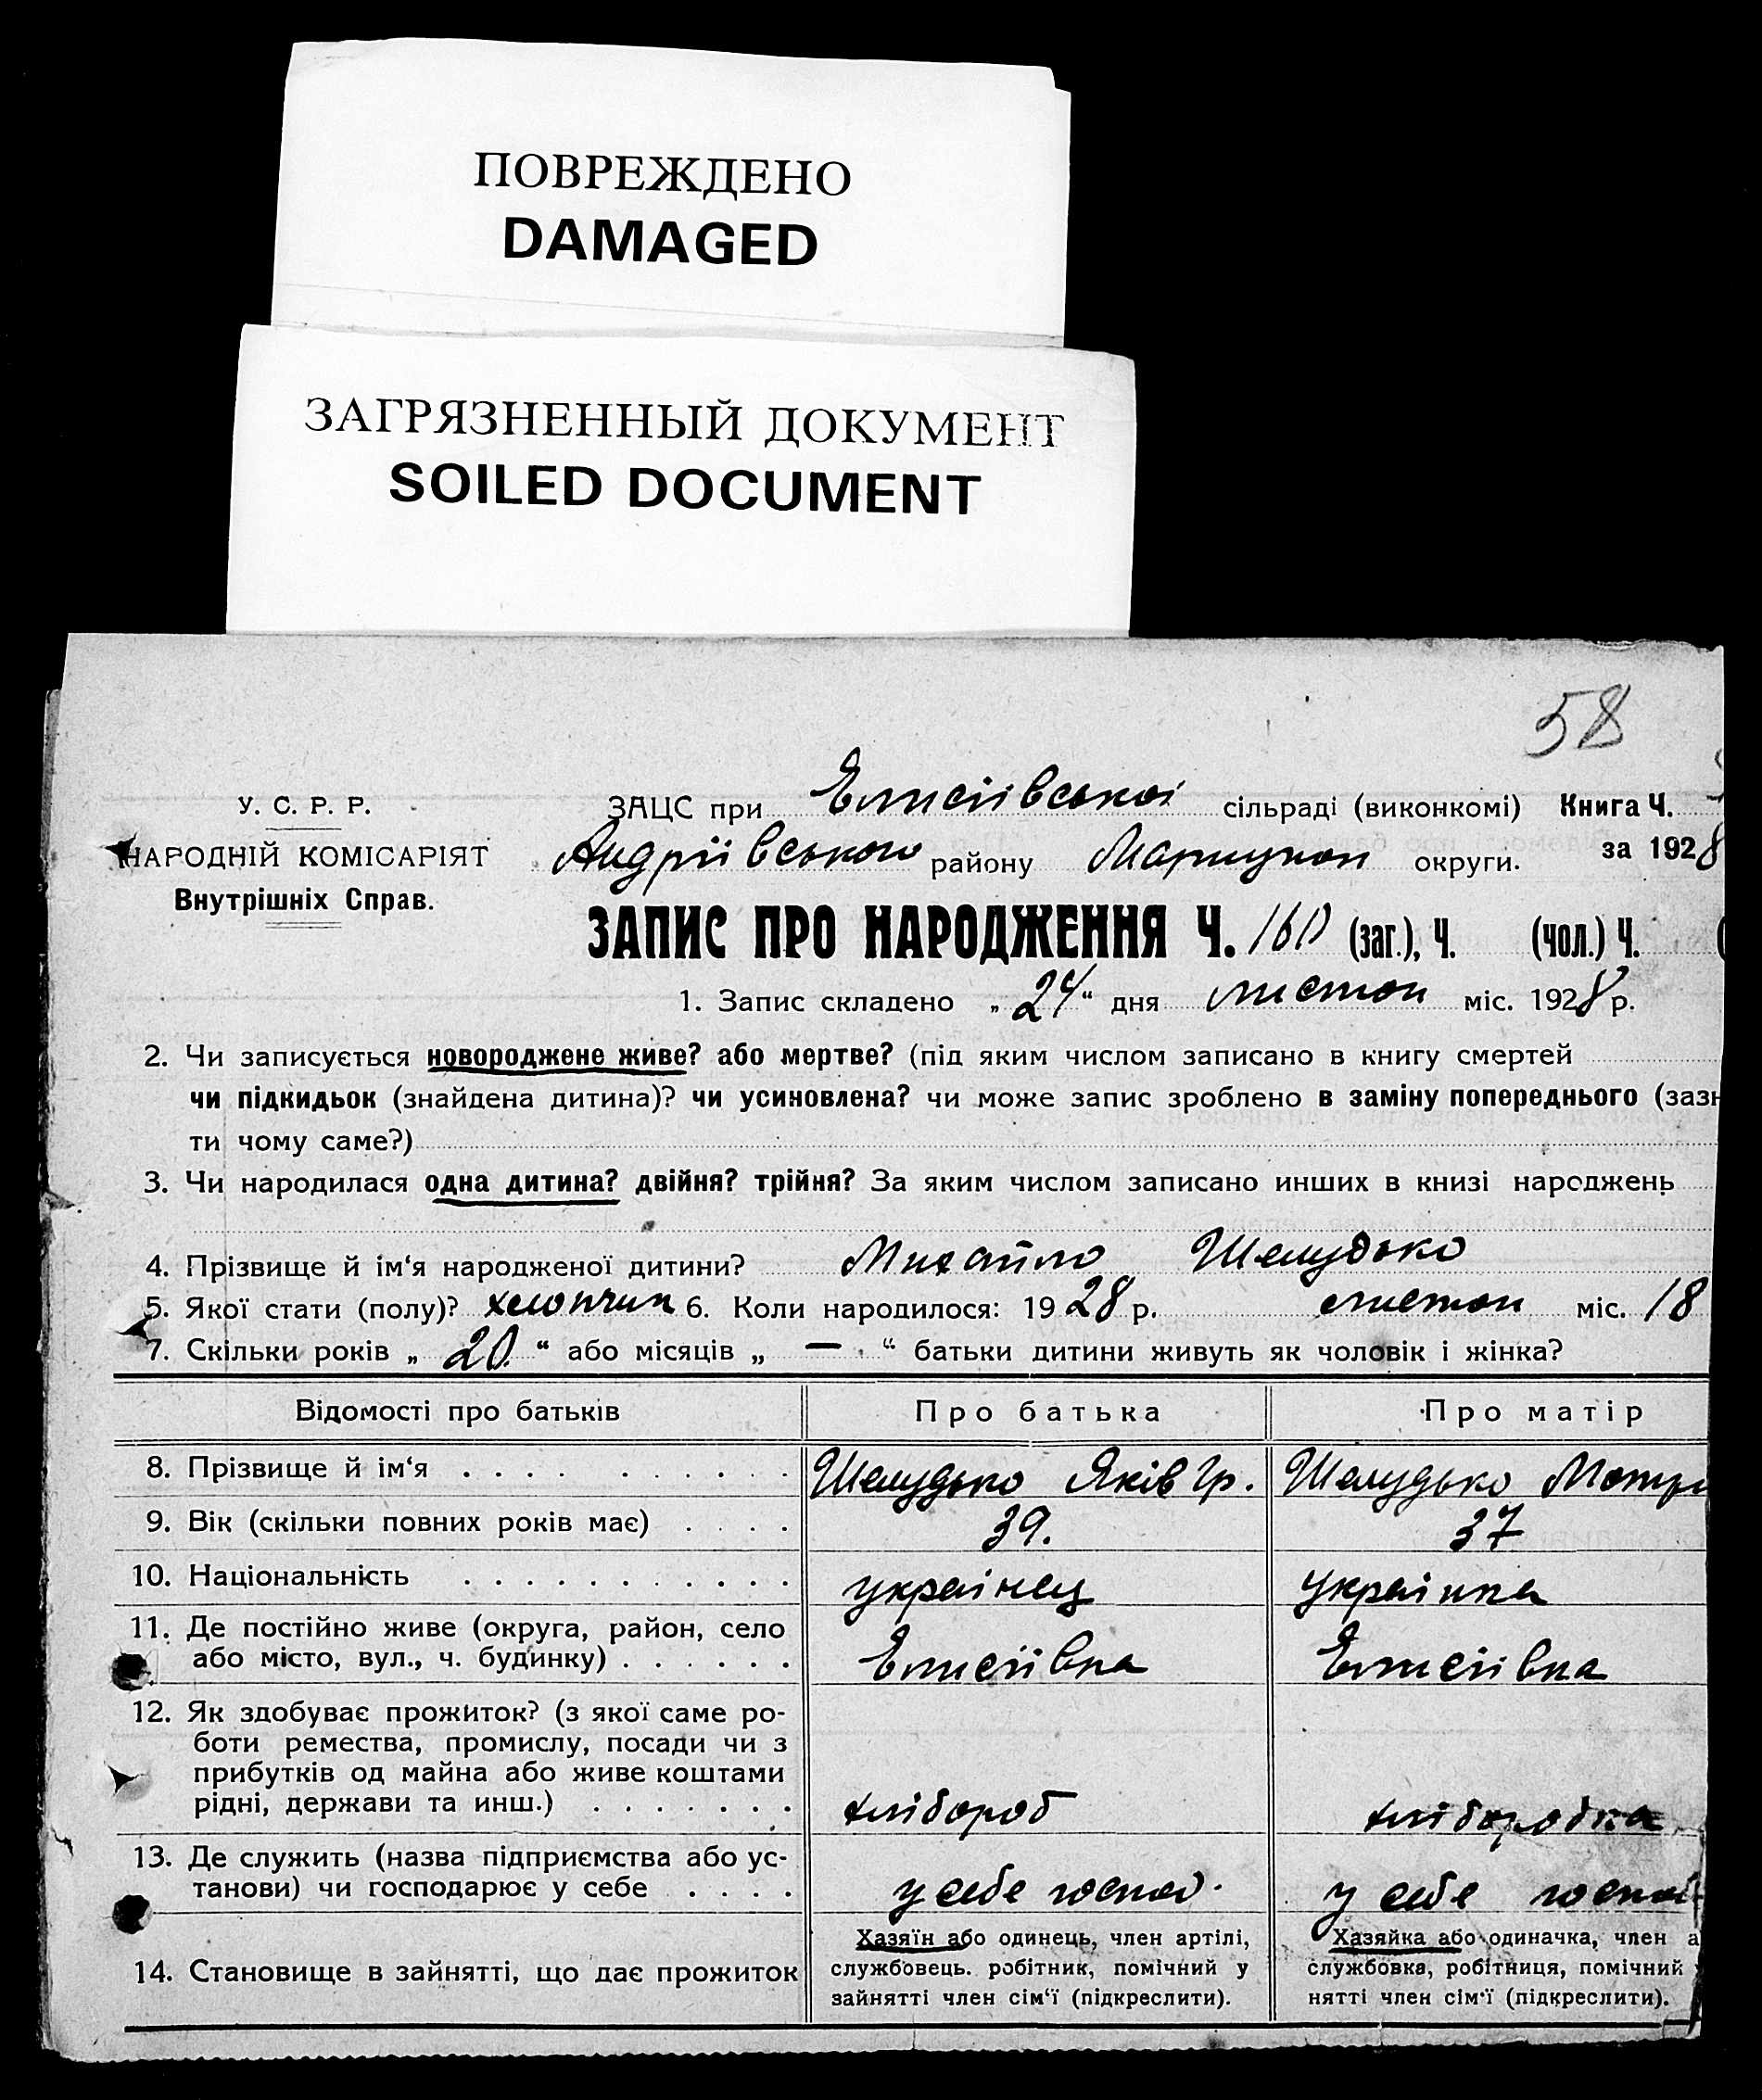 ПОВРЕЖДЕНО
DAMAGED
ЗАГРЯЗНЕННЫЙ ДОКУМЕНТ
SOILED DOCUMENT
58
У. С. Р. Р.
НАРОДНІЙ КОМІСАРІЯТ
Внутрішніх Справ.
ЗАЦС при Елисіївської сільраді (виконкомі) Книга Ч.
Андріївського району Маріупол округи. за 1928
ЗАПИС ПРО НАРОДЖЕННЯ Ч. 160 (заг.), Ч. (чол.) Ч. (
1. Запис складено „24“ дня листоп міс. 1928 р.
2. Чи записується новороджене живе? або мертве? (під яким числом записано в книгу смертей
чи підкидьок (знайдена дитина)? чи усиновлена? чи може запис зроблено в заміну попереднього (зазн
ти чому саме?)
3. Чи народилася одна дитина? двійня? трійня? За яким числом записано инших в книзі народжень
4. Прізвище й ім‘я народженої дитини? Михайло Шелудько
5. Якої стати (полу)? хлопчик 6. Коли народилося: 1928 р. листоп міс. 18
7. Скільки років „20“ або місяців „—“ батьки дитини живуть як чоловік і жінка?
Відомості про батьків Про батька Про матір
8. Прізвище й ім‘я . . . . Шелудько Яків Гр. Шелудько Мотр
9. Вік (скільки повних років має) . . . . 39. 37
10. Національність . . . . українец українка
11. Де постійно живе (округа, район, село
або місто, вул., ч. будинку) . . . . . . Елисіївка Елисіївка
12. Як здобуває прожиток? (з якої саме ро-
боти ремества, промислу, посади чи з
прибутків од майна або живе коштами
рідні, держави та инш.) . . . . . . . хлібороб хліборобка
13. Де служить (назва підприємства або ус-
танови) чи господарює у себе . . . . у себе господ. у себе господ
14. Становище в зайнятті, що дає прожиток
Хазяїн або одинець, член артілі,
службовець. робітник, помічний у
зайнятті член сім‘ї (підкреслити).
Хазяйка або одиначка, член а
службовка, робітниця, помічний у
нятті член сім‘ї (підкреслити).